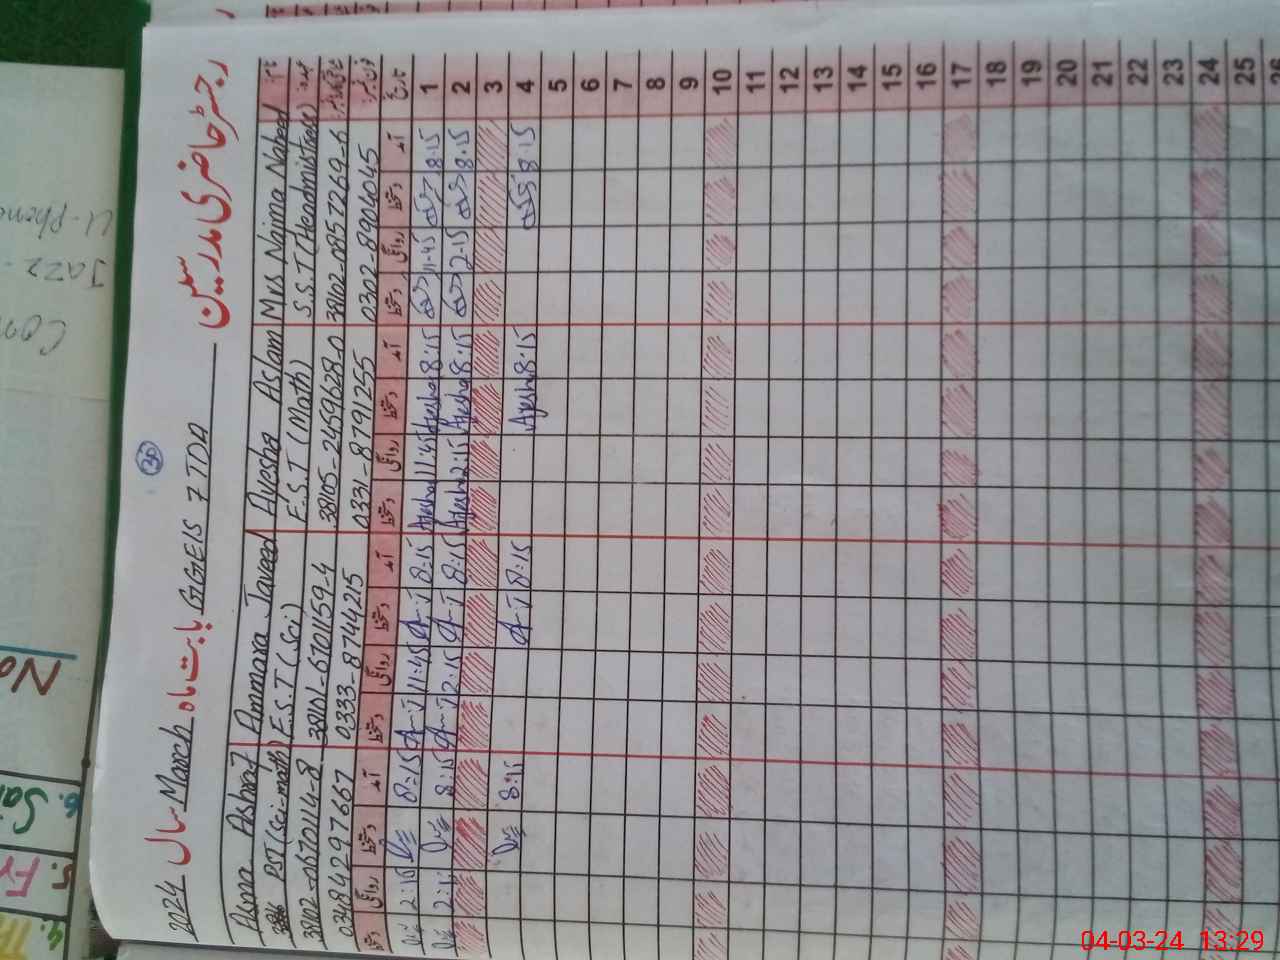 رجسٹر حاضری مدرسین
30
GGEIS 7 TDA بابت ماہ March سال 2024
نام
Mrs Naima Nabeed
Ayesha Aslam
Ammara Javeed
Asma Ashraf
عہدہ
S.S.T (Headmistress)
E.S.T (Math)
E.S.T (Sci)
PST (Sci-math)
38102-0857269-6
38105-2459628-0
38101-6701159-4
38102-0670114-8
فون نمبر
0302-8906045
0331-8791255
0333-8744215
03484297667
تاریخ آمد دستخط روانگی دستخط آمد دستخط روانگی دستخط آمد دستخط روانگی دستخط آمد دستخط روانگی دستخط
1 8:15 11-45 8:15 Ayesha 11:45 Ayesha 8:15 A-J 11:45 A-J 8:15 2:15
2 8:15 2-15 8:15 Ayesha 2:15 Ayesha 8:15 A-J 2:15 A-J 8:15 2:15
3
4 8:15 8:15 Ayesha 8:15 A-J 8:15
5
6
7
8
9
10
11
12
13
14
15
16
17
18
19
20
21
22
23
24
25
26
U-Phone
Jazz -
No
6. Sa
5. Fr
4. Th
04-03-24 13:29